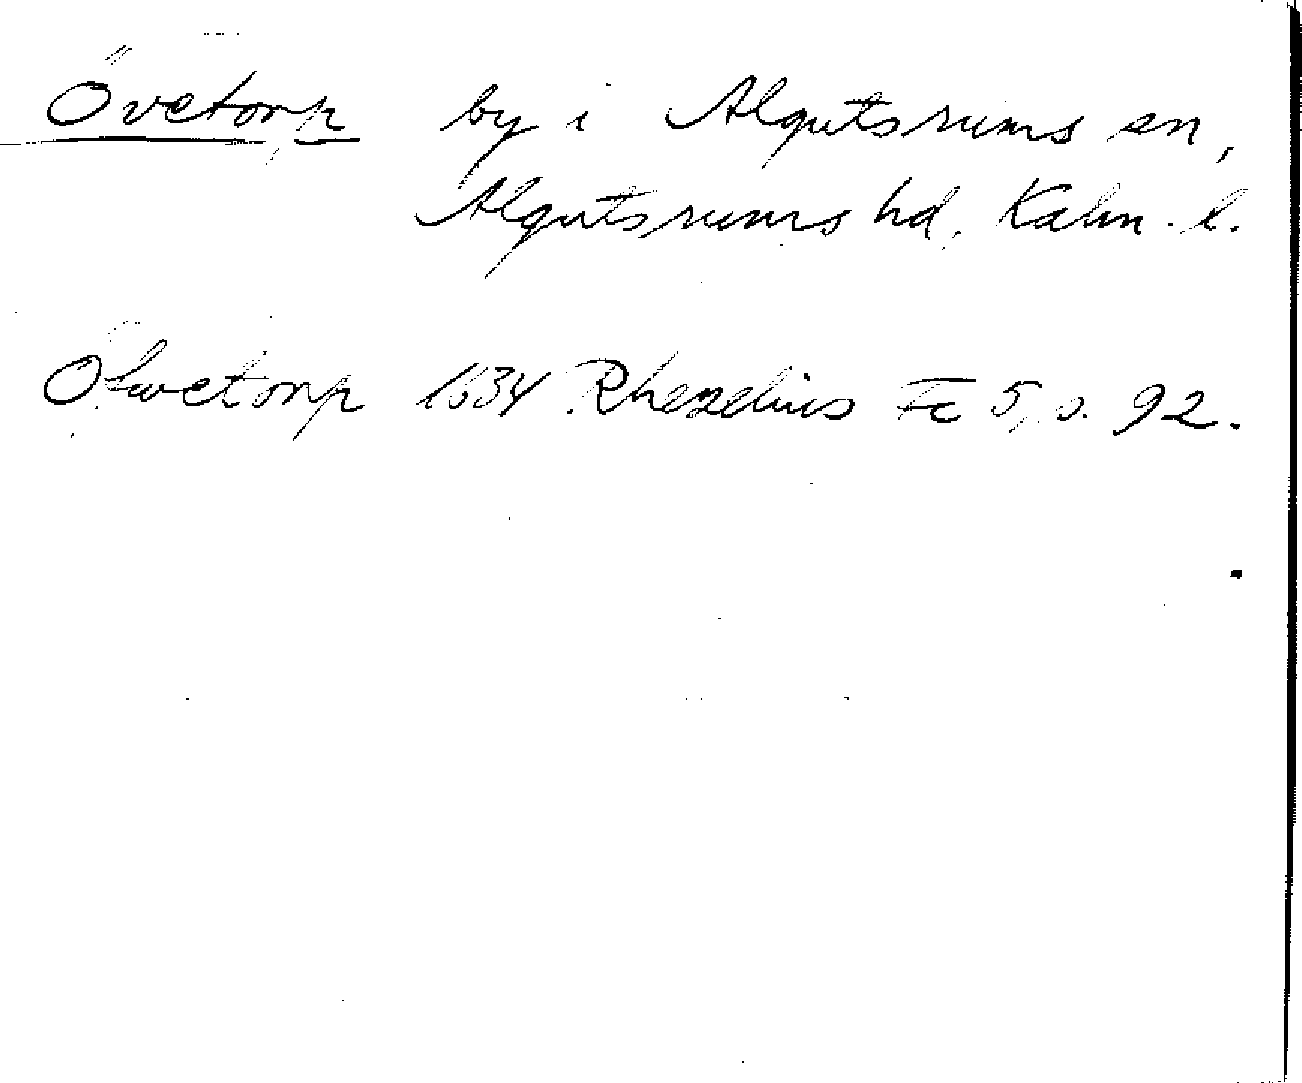 Övetorp by i Algutsrums sn,
Algutsrums hd, Kalm. l.
Ofwetorp 1634 Rhezelius Fc 5, s. 92.